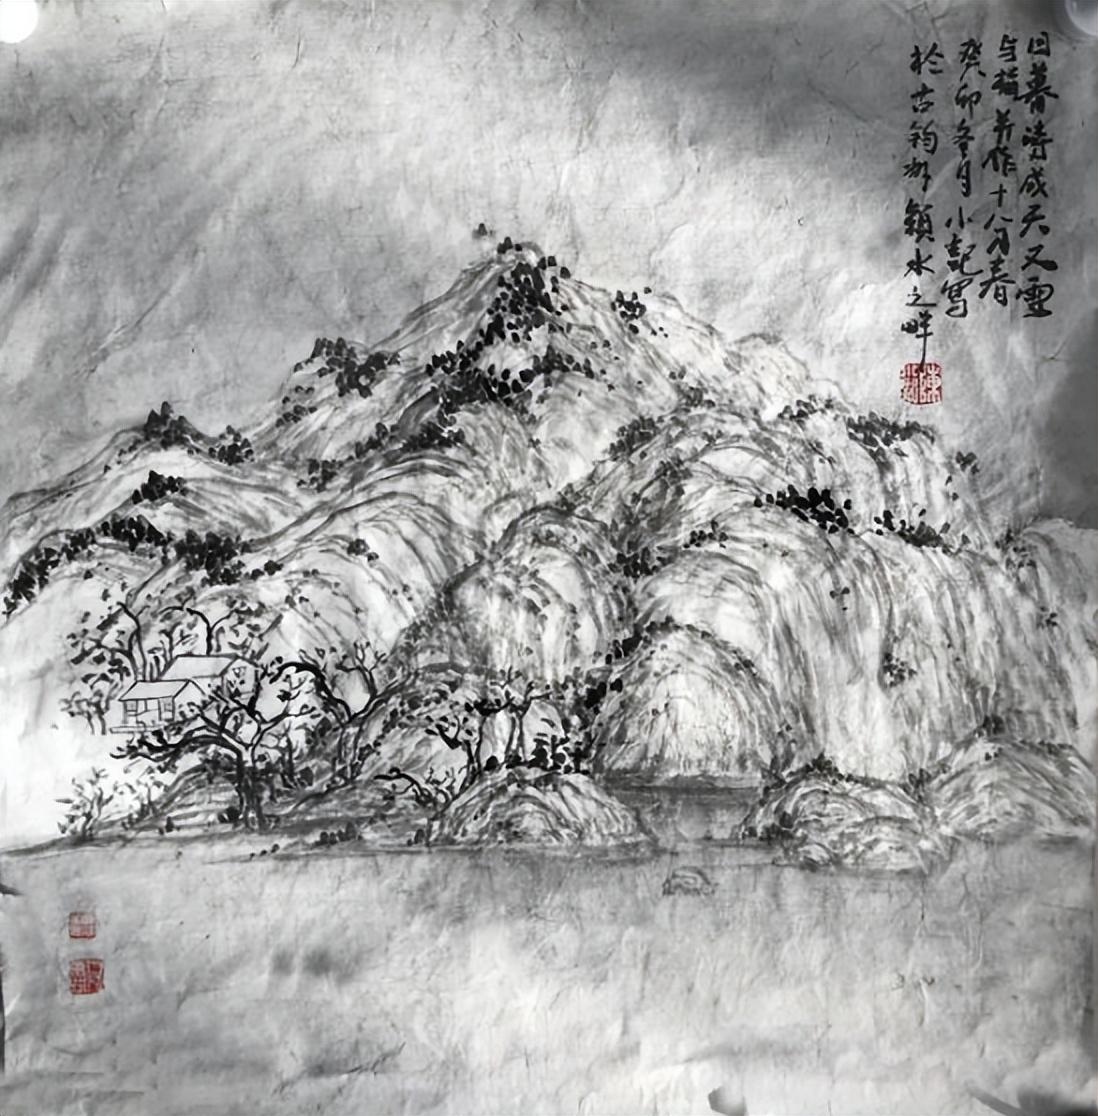 日暮诗成天又雪
与梅并作十分春
癸卯冬月小写
於古钧都颖水之畔